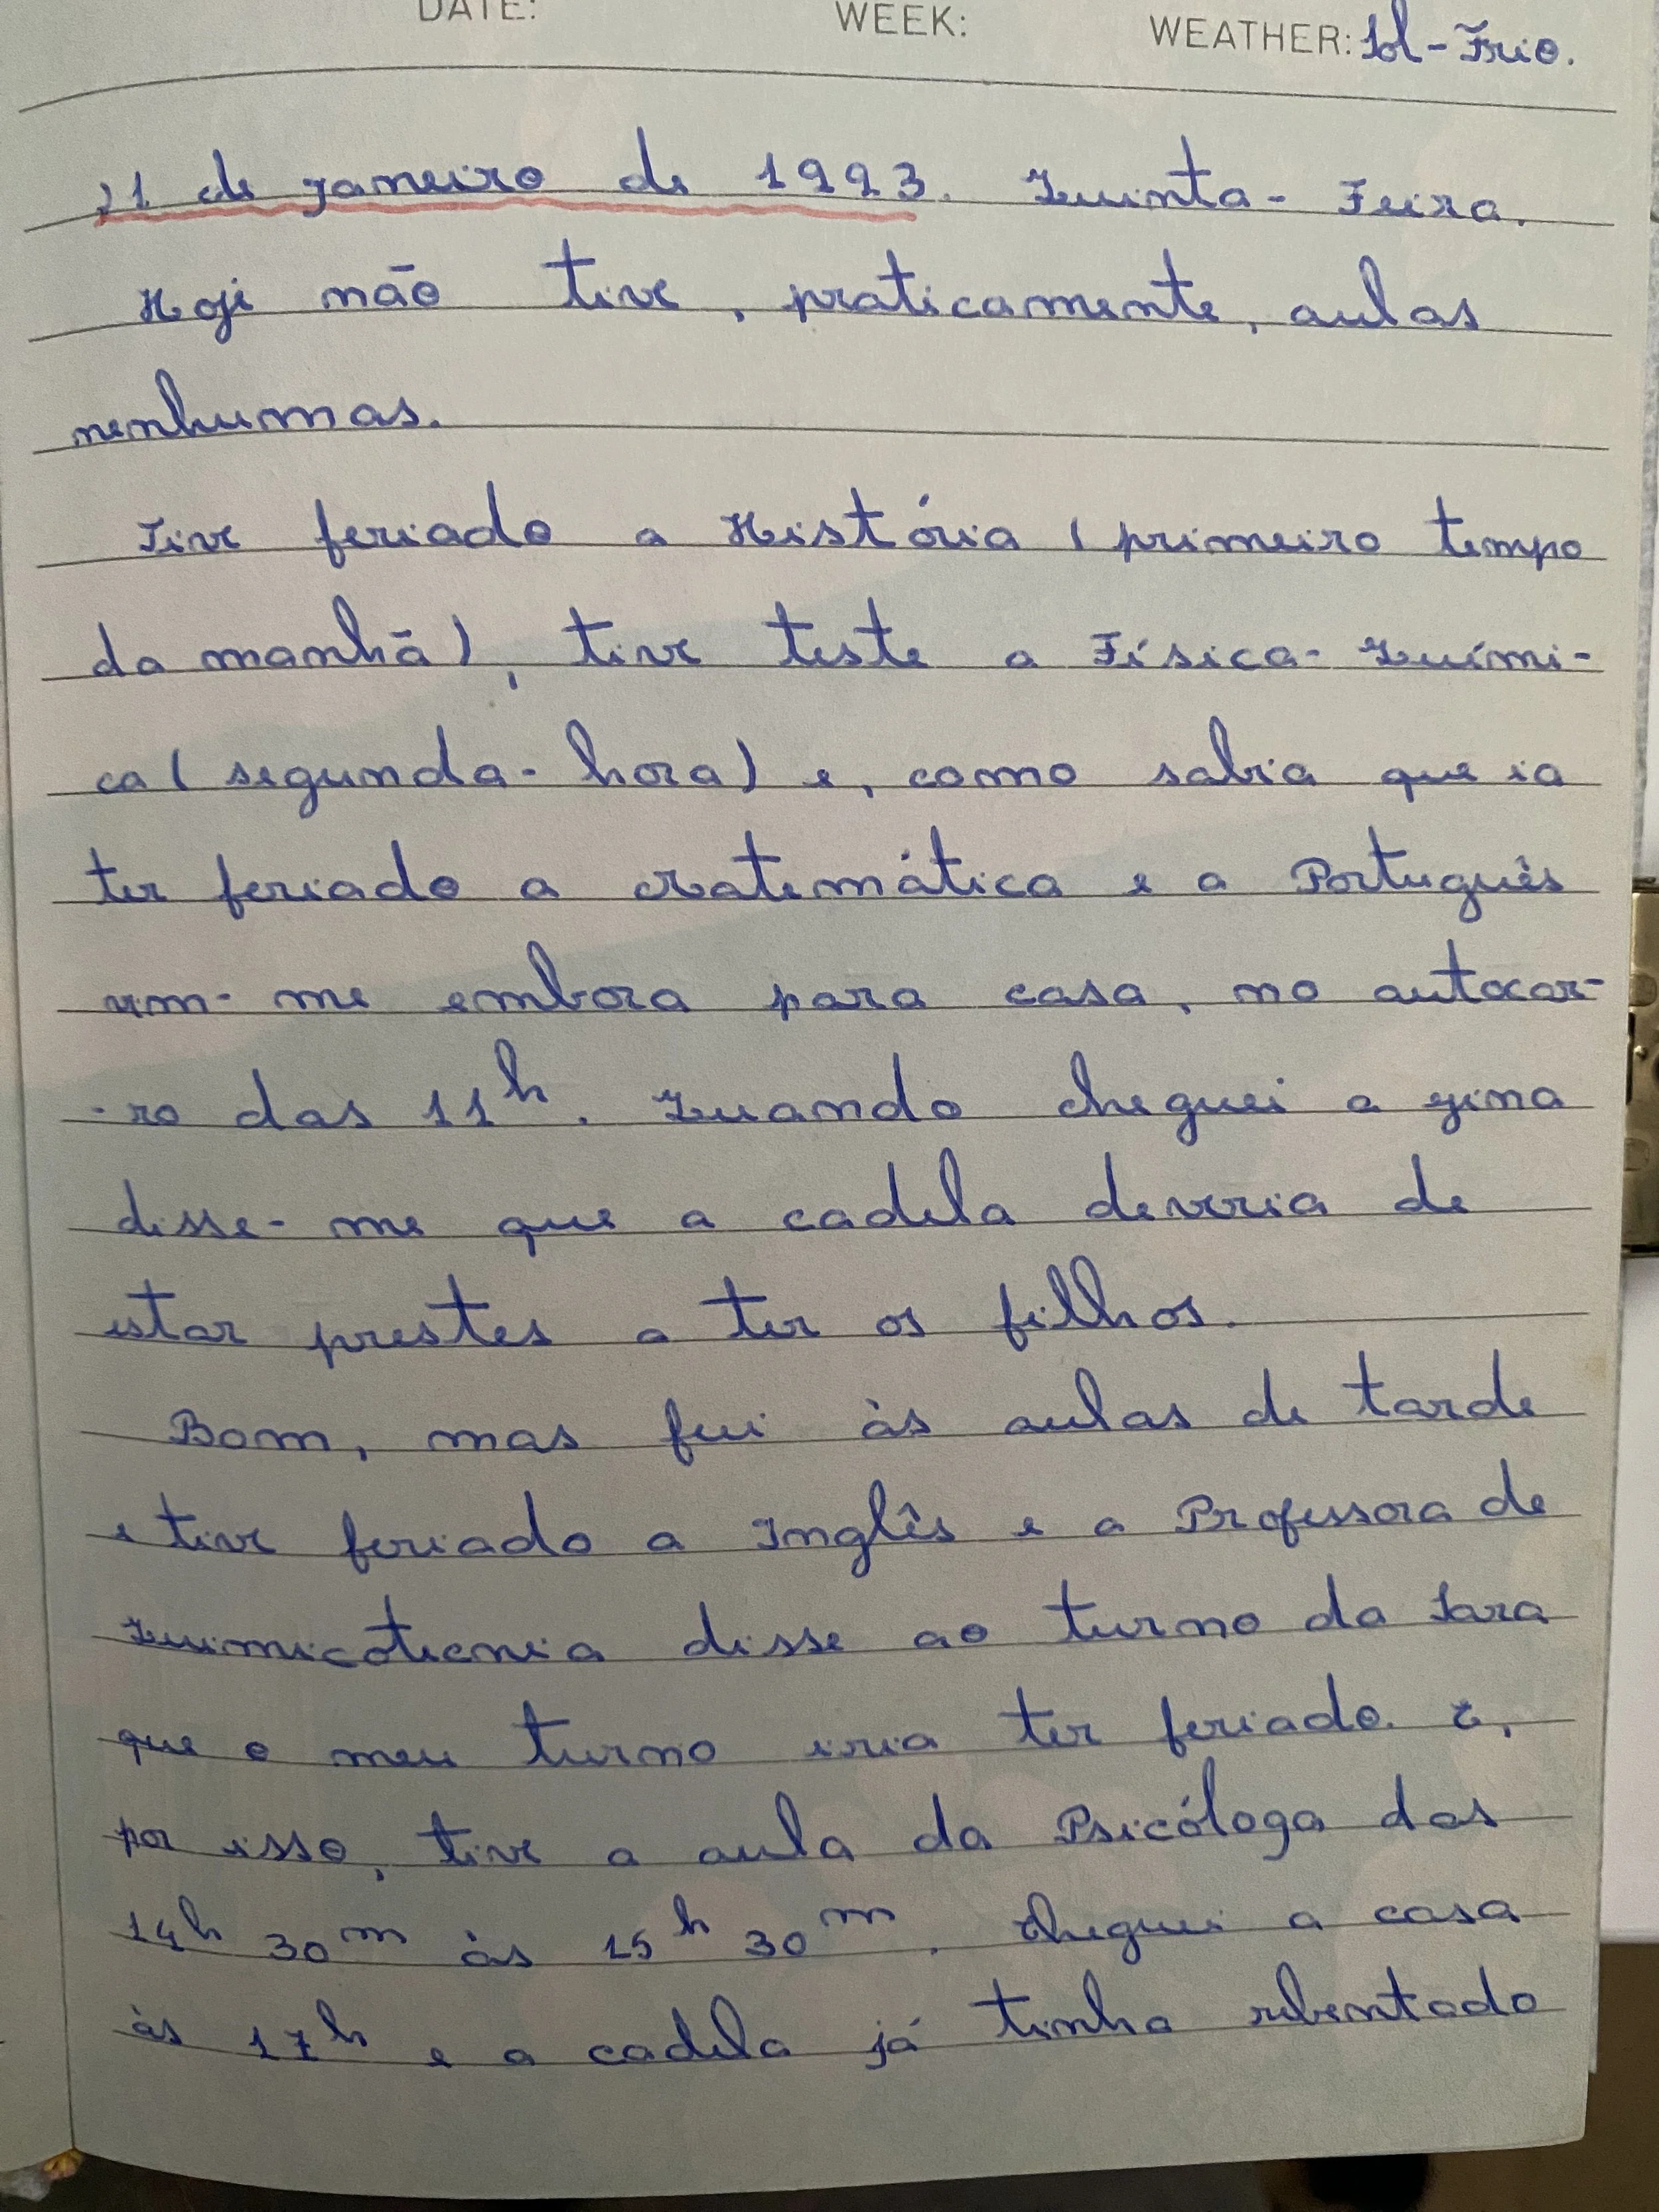 DATE: WEEK: WEATHER: Sol - Frio.
21 de Janeiro de 1993. Quinta-Feira.
Hoje não tive, praticamente, aulas
nenhumas.
Tive feriado a História (primeiro tempo
da manhã), tive teste a Física-Quími-
ca (segunda-hora) e, como sabia que ia
ter feriado a Matemática e a Português
vim-me embora para casa, no autocar-
-ro das 11h. Quando cheguei a gina
disse-me que a cadela deveria de
estar prestes a ter os filhos.
Bom, mas fui às aulas de tarde
e tive feriado a Inglês e a Professora de
Quimicotecnia disse ao turno da Sara
que o meu turno iria ter feriado. E,
por isso, tive a aula da Psicóloga das
14h 30m às 15h 30m. Cheguei a casa
às 17h e a cadela já tinha rebentado